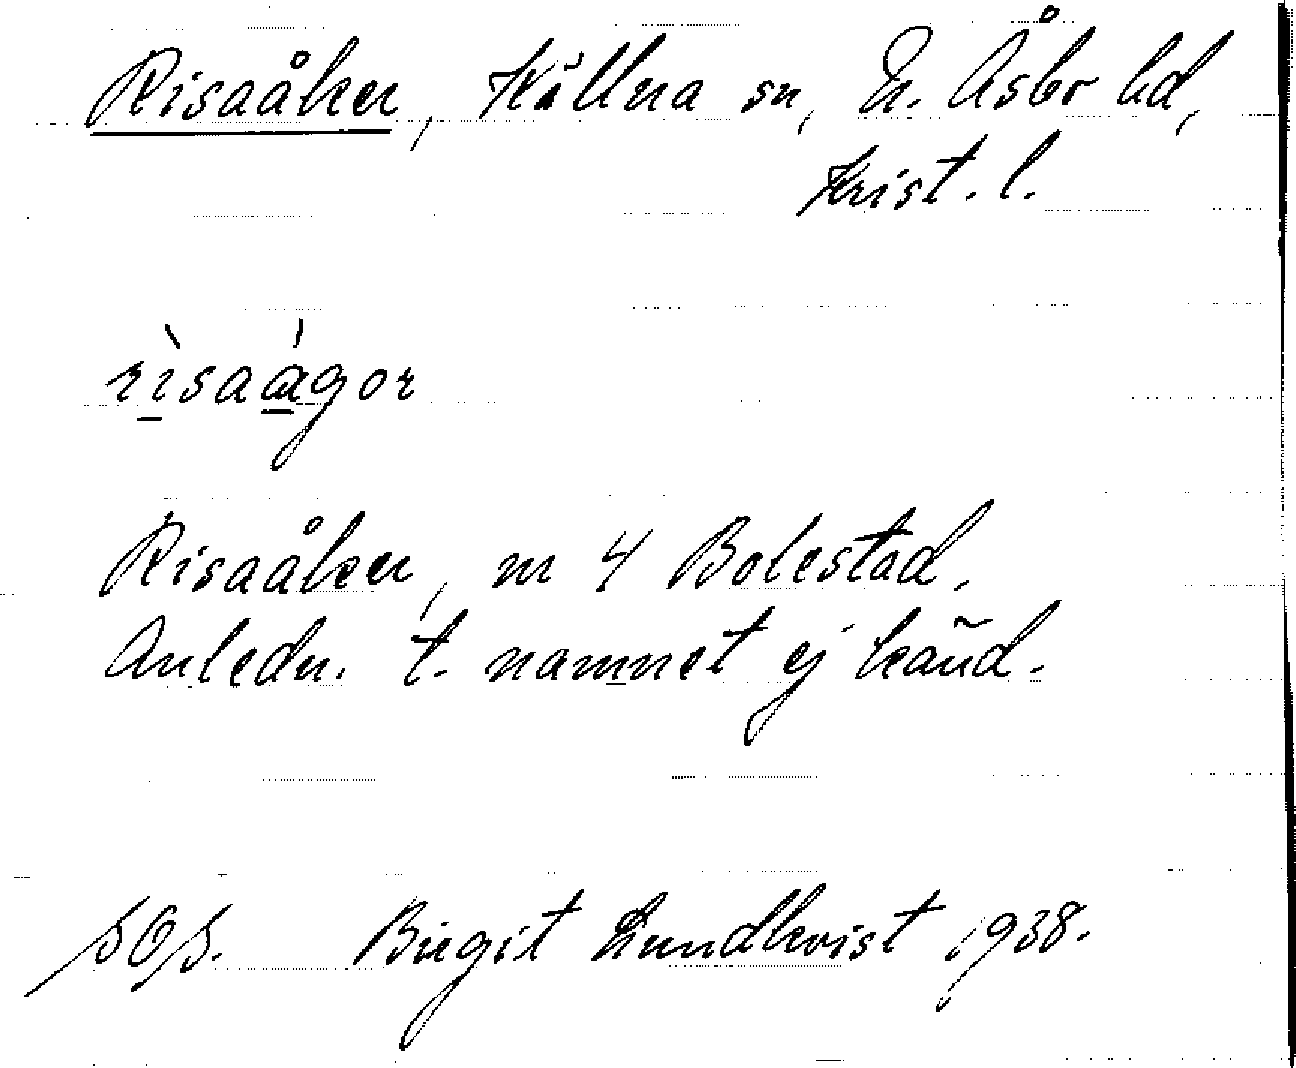 Risaåker, Källna sn, N. Åsbo hd,
Krist. l.
rìsaágor
Risaåker, nr 4 Bolestad.
Anledn. t. namnet ej känd.
SOS. Birgit Lundkvist 1938.